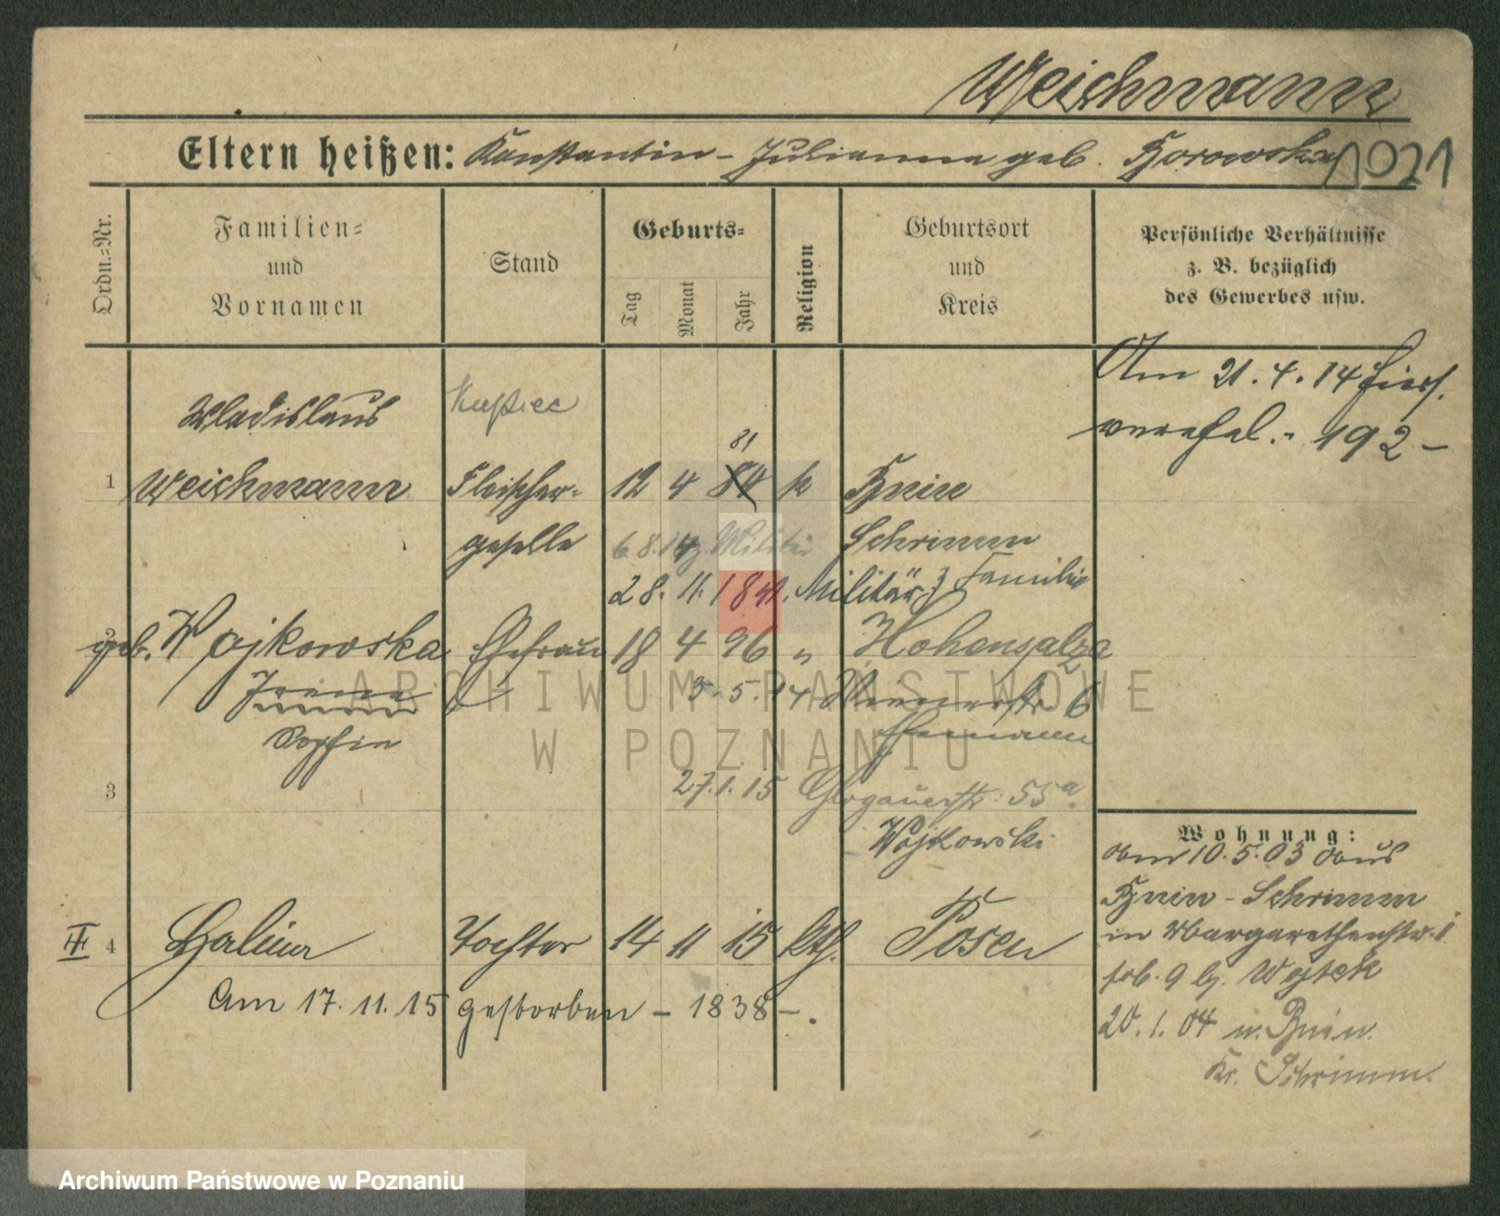 Weichmann
Eltern heißen: Konstantin - Julianna geb. Borowska
1021
Ordn.-Nr.
Familien- und Vornamen
Stand
Geburts-
Tag
Monat
Jahr
Religion
Geburtsort und Kreis
Persönliche Verhältnisse
z. B. bezüglich
des Gewerbes usw.
Am 21.4.14 hier
verehel. - 192 -
Wladislaus
Kupiec
81
1 Weichmann Fleischer- 12 4 84 k Bnin
geselle 6.8.14 z. Militär Schrimm
28. 11. 18 v. Militär z Familie
2 geb. Wojkowska Ehefrau 18 4 96 " Hohensalza
Irena 3.5.14 6
Sophie Ehemann
3 27.1.15 Glogauerstr. 55a.
Wojkowski
III 4 Halina Tochter 14 11 15 kth. Posen
Am 17.11.15 gestorben - 1838 -.
Wohnung:
am 10.5.03 aus
Bnin - Schrimm
in Margarethenstr. 1
9 bj. Wojtek
20.1.04 n. Bnin
Kr. Schrimm.
ARCHIWUM PAŃSTWOWE
W POZNANIU
Archiwum Państwowe w Poznaniu